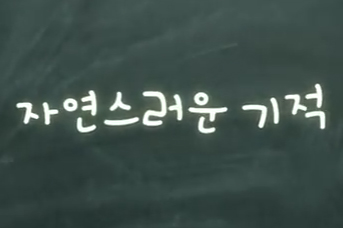 자연스러운 기적